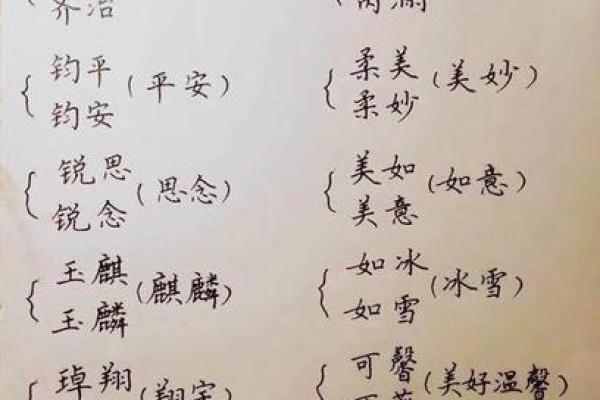 齐治
{ 钧平
钧安 (平安)
{ 锐思
锐念 (思念)
{ 玉麒
玉麟 (麒麟)
{ 琸翔
(翔宇)
{ 柔美
柔妙 (美妙)
{ 美如
美意 (如意)
{ 如冰
如雪 (冰雪)
{ 可馨
(美好温馨)